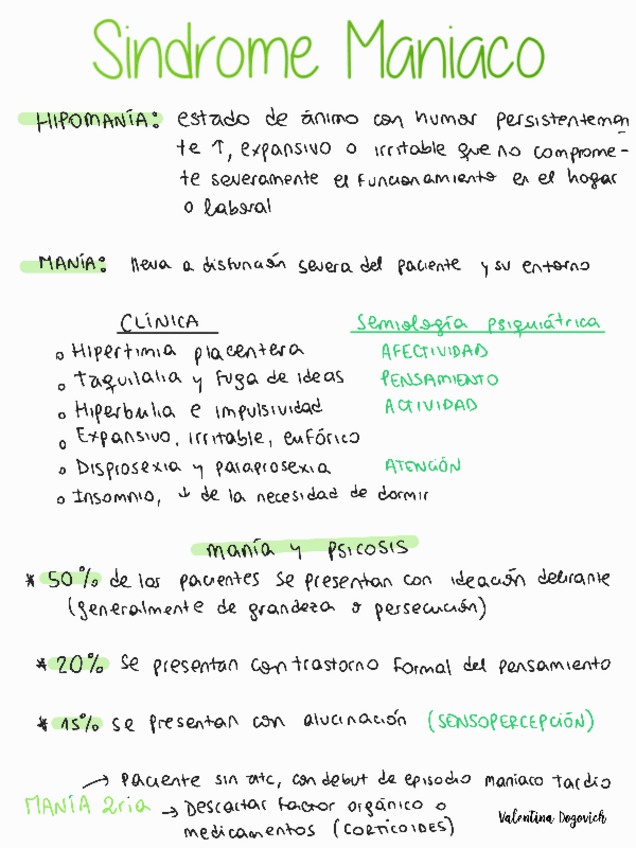 Sindrome Maniaco
HIPOMANÍA: estado de ánimo con humor persistentemen
te ↑, expansivo o irritable que no comprome-
te severamente el funcionamiento en el hogar
o laboral
MANÍA: lleva a disfunción severa del paciente y su entorno
CLÍNICA Semiología psiquiátrica
o Hipertimia placentera AFECTIVIDAD
o Taquilalia y fuga de ideas PENSAMIENTO
o Hiperbulia e impulsividad ACTIVIDAD
o Expansivo, irritable, eufórico
o Disprosexia y paraprosexia ATENCIÓN
o Insomnio, ↓ de la necesidad de dormir
manía y PSICOSIS
* 50% de los pacientes se presentan con ideación delirante
(generalmente de grandeza o persecución)
* 20% se presentan con trastorno formal del pensamiento
* 15% se presentan con alucinación (SENSOPERCEPCIÓN)
→ Paciente sin atc, con debut de episodio maniaco tardio
MANÍA 2ria → Descartar factor orgánico o
medicamentos (CORTICOIDES)
Valentina Dogovich